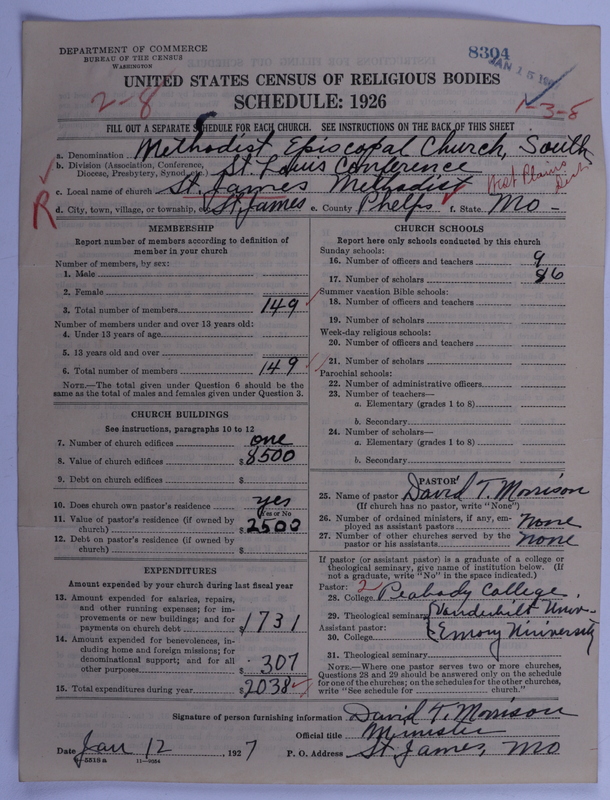 DEPARTMENT OF COMMERCE
BUREAU OF THE CENSUS
WASHINGTON
8304
JAN 15
UNITED STATES CENSUS OF RELIGIOUS BODIES
SCHEDULE: 1926
2-8
1-3-8
FILL OUT A SEPARATE SCHEDULE FOR EACH CHURCH. SEE INSTRUCTIONS ON THE BACK OF THIS SHEET
a. Denomination Methodist Episcopal Church, South
b. Division (Association, Conference, Diocese, Presbytery, Synod, etc.) St. Louis Conference
c. Local name of church St. James Methodist
West Plains Dist.
R
d. City, town, village, or township, St. James e. County Phelps f. State Mo-
MEMBERSHIP
Report number of members according to definition of
member in your church
Number of members, by sex:
1. Male
2. Female
3. Total number of members 149
Number of members under and over 13 years old:
4. Under 13 years of age
5. 13 years old and over
6. Total number of members 149
NOTE.—The total given under Question 6 should be the
same as the total of males and females given under Question 3.
CHURCH BUILDINGS
See instructions, paragraphs 10 to 12
7. Number of church edifices one
8. Value of church edifices $8500
9. Debt on church edifices $
10. Does church own pastor's residence yes
Yes or No
11. Value of pastor's residence (if owned by
church) $2500
12. Debt on pastor's residence (if owned by
church) $
EXPENDITURES
Amount expended by your church during last fiscal year
13. Amount expended for salaries, repairs,
and other running expenses; for im-
provements or new buildings; and for
payments on church debt $1731
14. Amount expended for benevolences, in-
cluding home and foreign missions; for
denominational support; and for all
other purposes $307
15. Total expenditures during year $2038
CHURCH SCHOOLS
Report here only schools conducted by this church
Sunday schools:
16. Number of officers and teachers 9
17. Number of scholars 86
Summer vacation Bible schools:
18. Number of officers and teachers
19. Number of scholars
Week-day religious schools:
20. Number of officers and teachers
21. Number of scholars
Parochial schools:
22. Number of administrative officers
23. Number of teachers—
a. Elementary (grades 1 to 8)
b. Secondary
24. Number of scholars—
a. Elementary (grades 1 to 8)
b. Secondary
PASTOR
25. Name of pastor David T. Morrison
(If church has no pastor, write "None")
26. Number of ordained ministers, if any, em-
ployed as assistant pastors none
27. Number of other churches served by the
pastor or his assistants none
If pastor (or assistant pastor) is a graduate of a college or
theological seminary, give name of institution below. (If
not a graduate, write "No" in the space indicated.)
Pastor: 2
28. College Peabody College.
29. Theological seminary Vanderbilt Univ-
Assistant pastor:
30. College Emory University
31. Theological seminary
NOTE.—Where one pastor serves two or more churches,
Questions 28 and 29 should be answered only on the schedule
for one of the churches; on the schedules for the other churches,
write "See schedule for church."
Signature of person furnishing information David T. Morrison
Official title Minister
Date Jan 12, 1927 P. O. Address St James, Mo
8-5519a 11-9054